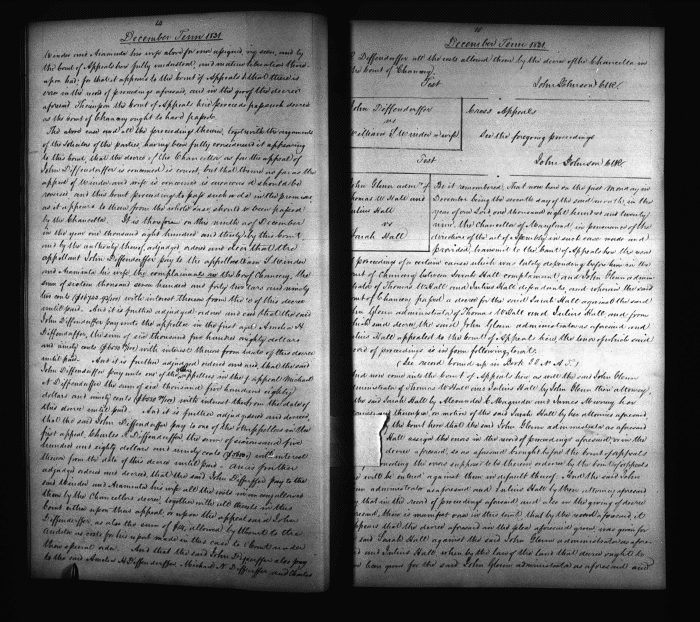 December Term 1831.
Winder and Araminta his wife above for ever assigned, by them, and by
the Court of Appeals been fully understood, and mature deliberation thereon
upon had: for that it appears to the Court of Appeals that there is
error in the record of proceedings aforesaid, and in the giving of the decree
aforesaid. Thereupon the Court of Appeals here proceeds to pass such decree
as the Court of Chancery ought to have passed.
The above case and all the proceedings therein, together with the arguments
of the Solicitors of the parties, having been fully considered it appearing
to this Court, that the decree of the Chancellor as far as the appeal of
John Diffenderffer is concerned is correct, but that there is as far as the
appeal of Winder and wife is concerned is erroneous & should be
reversed and this Court proceeding to pass such order in the premises
as it appears to them from the whole case should have been passed
by the Chancellor. It is therefore on this ninth of December
in the year one thousand eight hundred and thirty by this Court,
and by the authority thereof adjudged ordered and decreed that the
appellant John Diffenderffer pay to the appellees Winder
and Araminta his wife, the complainants in the Court of Chancery, the
sum of sixteen thousand seven hundred and forty two dollars and ninety
two cents with interest thereon from the of this decree
until paid. And it is further adjudged ordered and decreed that the said
John Diffenderffer pay unto the appellee in the first appeal Amelia H.
Diffenderffer, the sum of six thousand five hundred eighty dollars
and ninety cents with interest thereon from date of this decree
until paid. And it is further adjudged ordered and decreed that the said
John Diffenderffer pay unto one of the appellees in the appeal Michael
N Diffenderffer the sum of six thousand five hundred eighty
dollars and ninety cents with interest thereon from the date of
this decree until paid. And it is further adjudged ordered and decreed,
that the said John Diffenderffer pay to one of the Appellees in the
first appeal, Charles R Diffenderffer the sum of six thousand five
hundred and eighty dollars and ninety cents with interest
thereon from the date of this decree until paid. And is further
adjudged ordered and decreed, that the said John Diffenderffer pay to the
said Winder and Araminta his wife all the costs in Chancery allowed
them by the Chancellors decree, together with all the costs in this
Court either upon their appeal or upon the appeal of said John
Diffenderffer, as also the sum of allowed by the Court to the
Auditor as costs for his report made in this case to this Court under
their special order. And that the said John Diffenderffer also pay
to the said Amelia H Diffenderffer, Michael N Diffenderffer and Charles
December Term 1831.
R Diffenderffer, all the costs allowed them by the decree of the Chancellor in
the Court of Chancery.
Test John Johnson Clk
John Diffenderffer
vs
William S Winder & wife
Cross Appeals
See the foregoing proceedings
Test John Johnson Clk
John Glenn admr of
Thomas W Hall and
Julius Hall
vs
Sarah Hall
Be it remembered, That now here on the first Monday in
December being the seventh day of the said month, in the
year of our Lord one thousand eight hundred and twenty
nine, the Chancellor of Maryland in pursuance of the
directions of the act of Assembly in such case made and
provided, transmits to the Court of Appeals here the record
of proceedings of a certain cause which was lately depending before him in the
Court of Chancery between Sarah Hall complainant and John Glenn admin-
istrator of Thomas W Hall and Julius Hall defendants, and wherein the said
Court of Chancery passed a decree for the said Sarah Hall against the said
John Glenn administrator of Thomas W Hall and Julius Hall and from
which said decree, the said John Glenn administrator as aforesaid and
Julius Hall appealed to the Court of Appeals here, the tenor of which said
record of proceedings is in form following, to wit:
(See record bound up in Book
And now come into the Court of Appeals here as well the said John Glenn
administrator of Thomas W Hall and Julius Hall by John Glenn their attorney,
the said Sarah Hall by Alexander C Magruder and James Murray her
attornies and thereupon, on motion of the said Sarah Hall by her attornies aforesaid,
the Court here that the said John Glenn administrator as aforesaid
Hall assign the errors in the record of proceedings aforesaid, or in the
decree aforesaid, so as aforesaid brought before the Court of appeals
the errors supposed to be therein ordered by the Court of appeals
will be entered against them in default thereof. And the said John
Glenn administrator as aforesaid and Julius Hall by their attorney aforesaid
say that in the record of proceedings aforesaid and also in the giving of decree
aforesaid, there is manifest error in this to wit, that by the record aforesaid it
appears that the decree aforesaid in the plea aforesaid given was given for
the said Sarah Hall against the said John Glenn administrator as afore-
said and Julius Hall, when by the law of the land that decree ought to
have been given for the said John Glenn administrator as aforesaid and